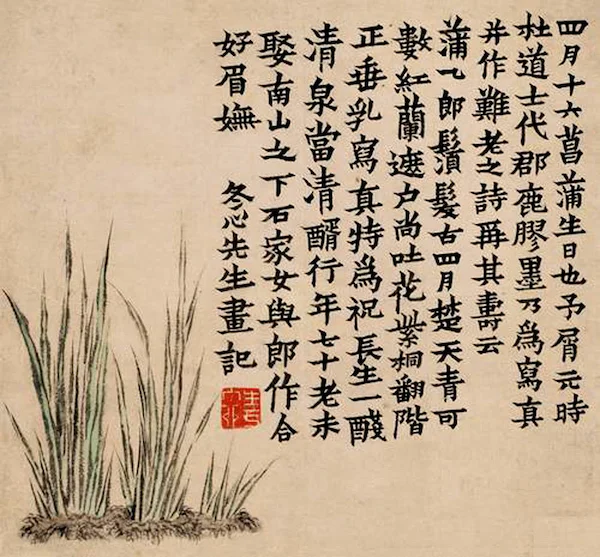 四月十六菖蒲生日也予屑元時
杜道士代郡鹿膠墨乃為寫真
并作難老之詩再其壽云
蒲〻郎鬚髮古四月楚天青可
數紅蘭遮户尚吐花紫桐翻階
正垂乳寫真特為祝長生一醆
清泉當清醑行年七十老未
娶南山之下石家女與郎作合
好眉嫵
冬心先生畫記